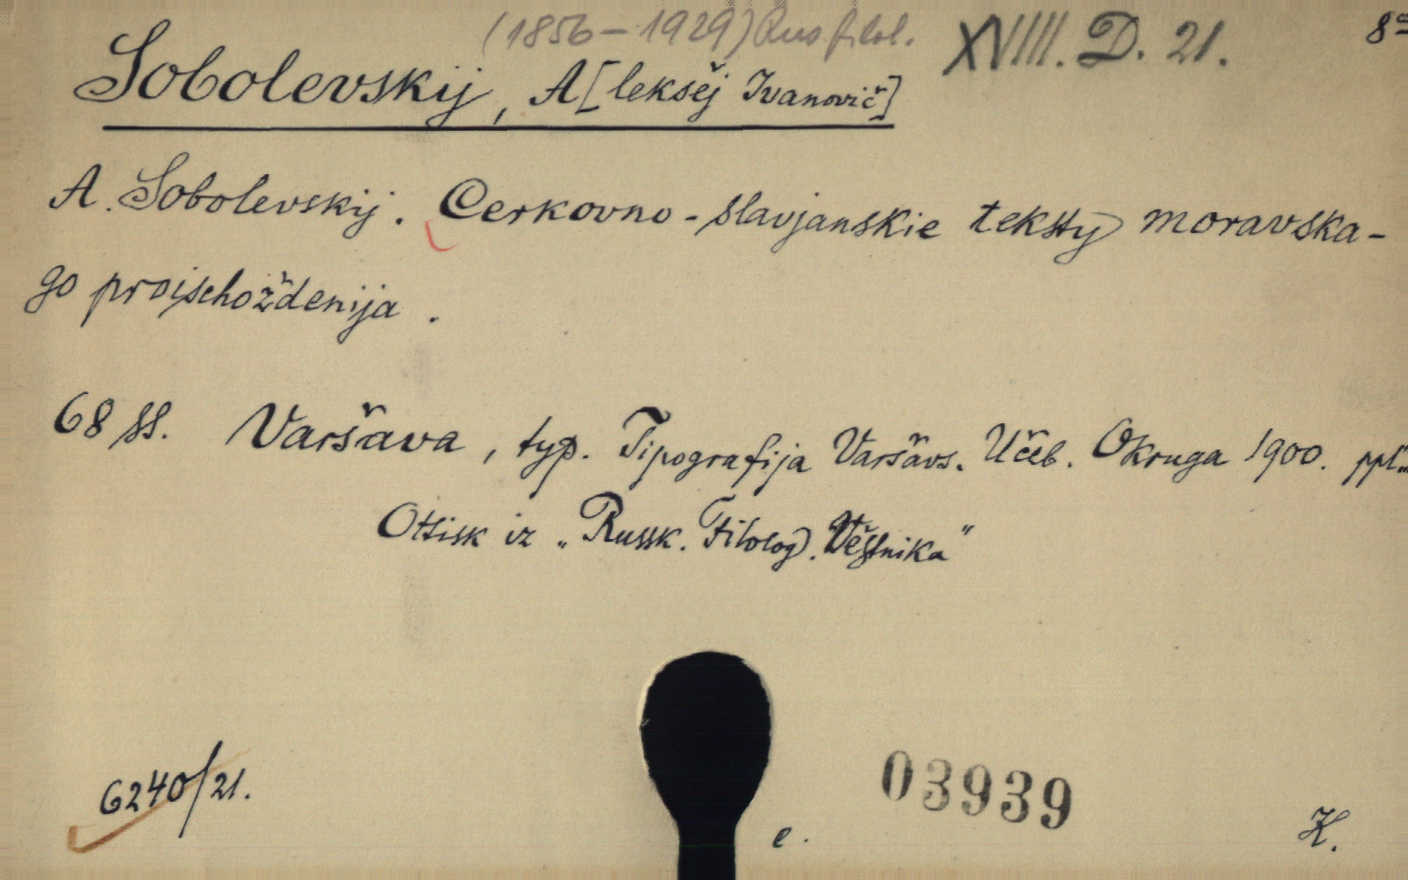 (1856-1929) Rus. filol. XVIII. D. 21. 8°
Sobolevskij, A[leksěj Ivanovič]
A. Sobolevskij. Cerkovno-slavjanskie teksty moravska-
go proischoždenija.
68 ss. Varšava, typ. Tipografija Varšavs. Učeb. Okruga 1900.
Ottisk iz „Russk. Filolog. Věstnika"
6240/21.
03939
e.
K.